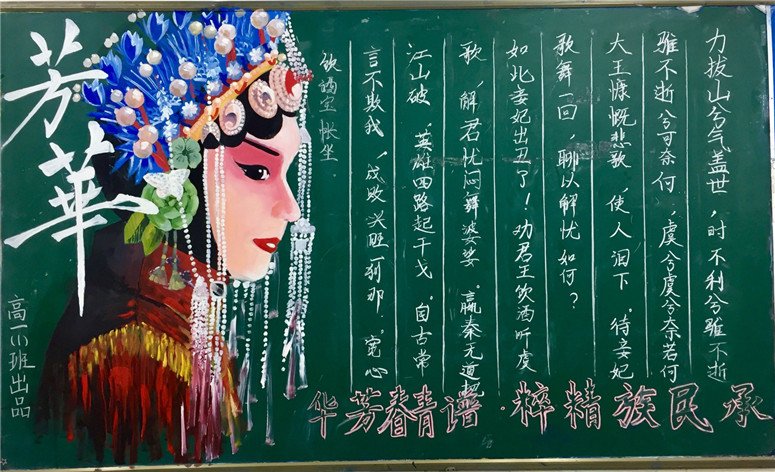 芳華
力拔山兮气盖世，时不利兮骓不逝
骓不逝兮可奈何，虞兮虞兮奈若何
大王慷慨悲歌，使人泪下。待妾妃
歌舞一回，聊以解忧如何？
如此妾妃出丑了！劝君王饮酒听虞
歌，解君忧闷舞婆娑。嬴秦无道把
江山破，英雄四路起干戈。自古常
言不欺我，成败兴旺一刹那。宽心
饮宝帐坐.
承民族精粹·谱青春芳华
高一(1)班出品